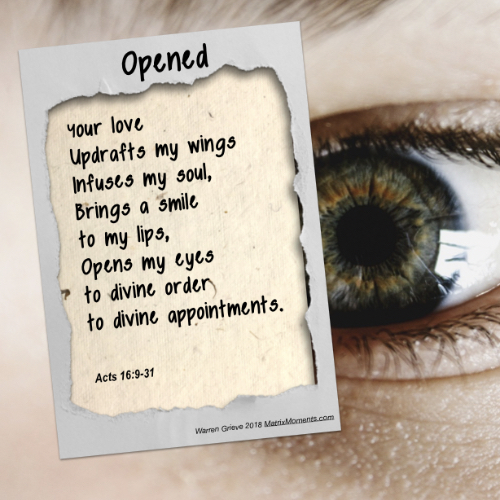 Opened
Your love
Updrafts my wings
Infuses my soul,
Brings a smile
to my lips,
Opens my eyes
to divine order
to divine appointments.
Acts 16:9-31
Warren Grieve 2018 MatrixMoments.com